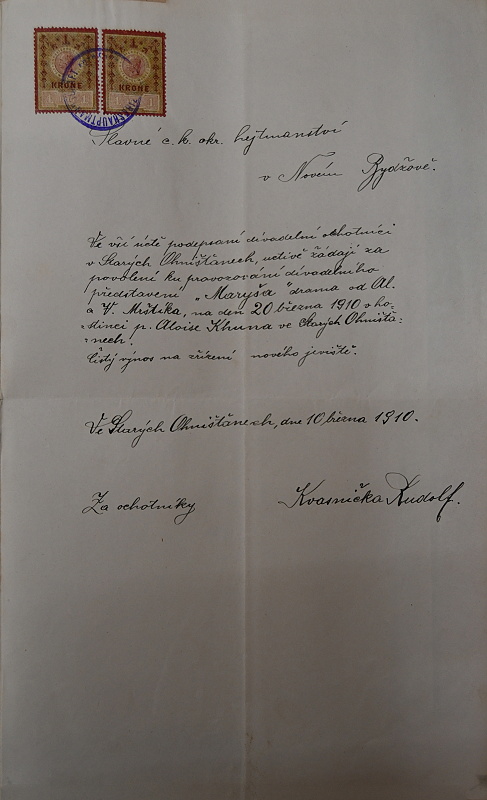 1 1
KRONE KRONE
1 1 1 1
Slavné c. k. okr. hejtmanství
v Novém Bydžově.
Ve vší úctě podepsaní divadelní ochotníci
v Starých Ohništanech, uctivě žádají za
povolení ku provozování divadelního
představení „Maryša" drama od Al.
a V. Mrštíka, na den 20 března 1910 v ho-
stinci p. Aloise Khuna ve Starých Ohništa-
nech.
Čistý výnos na zřízení nového jeviště.
Ve Starých Ohništanech, dne 10 března 1910.
Za ochotníky
Kvasnička Rudolf.